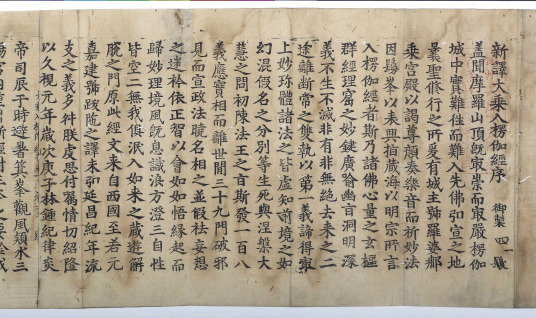 新譯大乘入楞伽經序 御製 四一號
蓋聞摩羅山頂既最崇而最嚴楞伽
城中實難往而難入先佛弘宣之地
曩聖修行之所爰有城主號羅婆那
乘宮殿以謁尊顏奏樂音而祈妙法
因鬘峯以表興指藏海以明宗所言
入楞伽經者斯乃諸佛心量之玄樞
群經理窟之妙鍵廣喻幽旨洞明深
義不生不滅非有非無絕去來之二
途離斷常之雙執以第一義諦得最
上妙珍體諸法之皆虛知前境之如
幻混假名之分別等生死與涅槃大
慧之問初陳法王之旨斯發一百八
義應實相而離世間三十九門破邪
見而宣政法曉名相之並假袪妄想
之迷衿依正智以會如如悟緣起而
歸妙理境風既息識浪方澄三自性
皆空二無我俱泯入如來之藏遊解
脫之門原此經文來自西國至若元
嘉建號跋陁之譯未弘延昌紀年流
支之義多舛朕虔思付囑情切紹隆
以久視元年歲次庚子林鍾紀律炎
帝司辰于時避暑箕峯觀風潁水三
陽宮內重出斯經討三本之要詮成